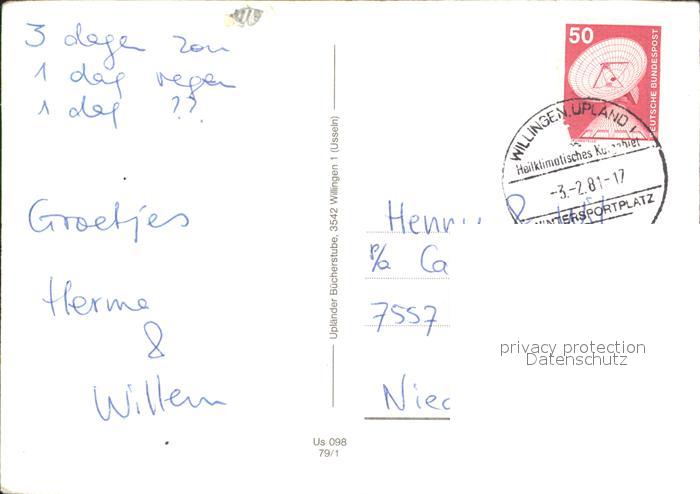 3 dagen zon
1 dag regen
1 dag ??
Groetjes
Herma
&
Willem
Upländer Bücherstube, 3542 Willingen 1 (Usseln)
Us 098
79/1
50
DEUTSCHE BUNDESPOST
WILLINGEN, UPLAND
Heilklimatisches
-3.-2.81-17
WINTERSPORTPLATZ
P/a Ca
7557
privacy protection
Datenschutz